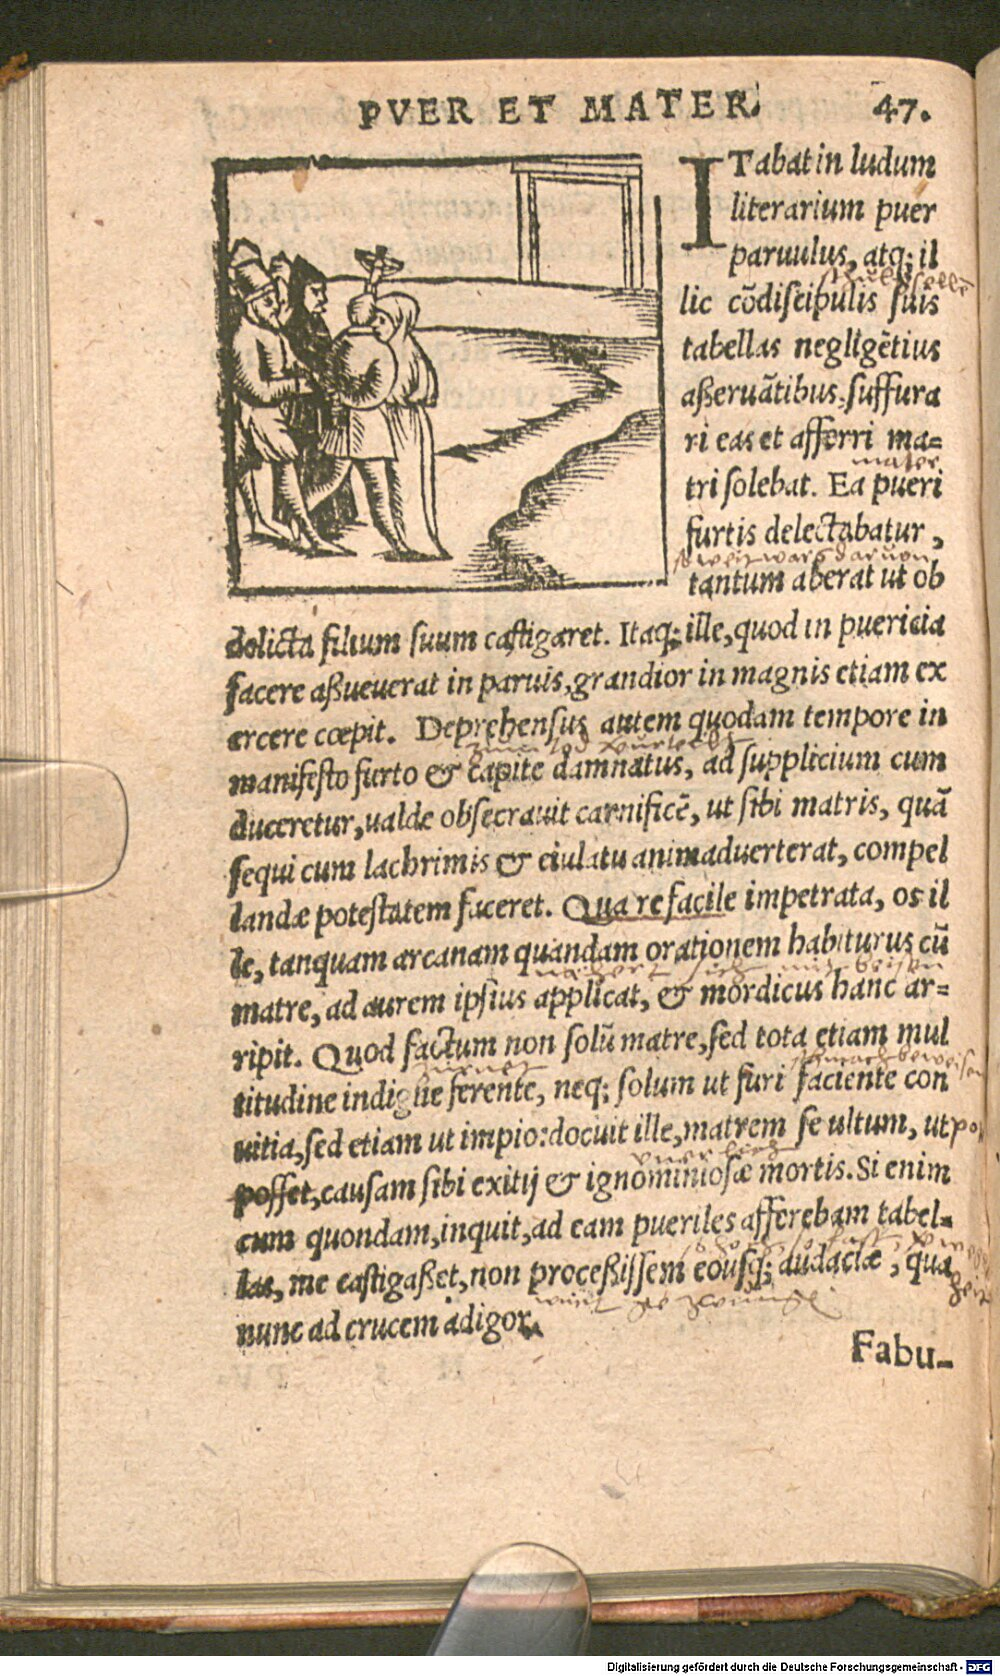 PVER ET MATER. 47.
ITabat in ludum
literarium puer
paruulus, atq; il
lic cōdiscipulis suis
tabellas negligētius
aßeruātibus suffura
ri eas et afferri ma=
mater
tri solebat. Ea pueri
furtis delectabatur,
so weit wars daruon
tantum aberat ut ob
delicta filium suum castigaret. Itaq; ille, quod in puericia
facere aßueuerat in paruis, grandior in magnis etiam ex
ercere cœpit. Deprehensus autem quodam tempore in
manifesto furto & capite damnatus, ad supplicium cum
duceretur, ualde obsecrauit carnificē, ut sibi matris, quā
sequi cum lachrimis & eiulatu animaduerterat, compel
landæ potestatem faceret. Qua re facile impetrata, os il
le, tanquam arcanam quandam orationem habiturus cū
matre, ad aurem ipsius applicat, & mordicus hanc ar=
ripit. Quod factum non solū matre, sed tota etiam mul
zürnet
titudine indigne ferente, neq; solum ut furi faciente con
uitia, sed etiam ut impio: docuit ille, matrem se ultum, ut po
posset, causam sibi exitij & ignominiosæ mortis. Si enim
cum quondam, inquit, ad eam pueriles afferebam tabel=
las, me castigaßet, non proceßissem eousq; audaciæ, qua
nunc ad crucem adigor.
Fabu-
Digitalisierung gefördert durch die Deutsche Forschungsgemeinschaft - DFG